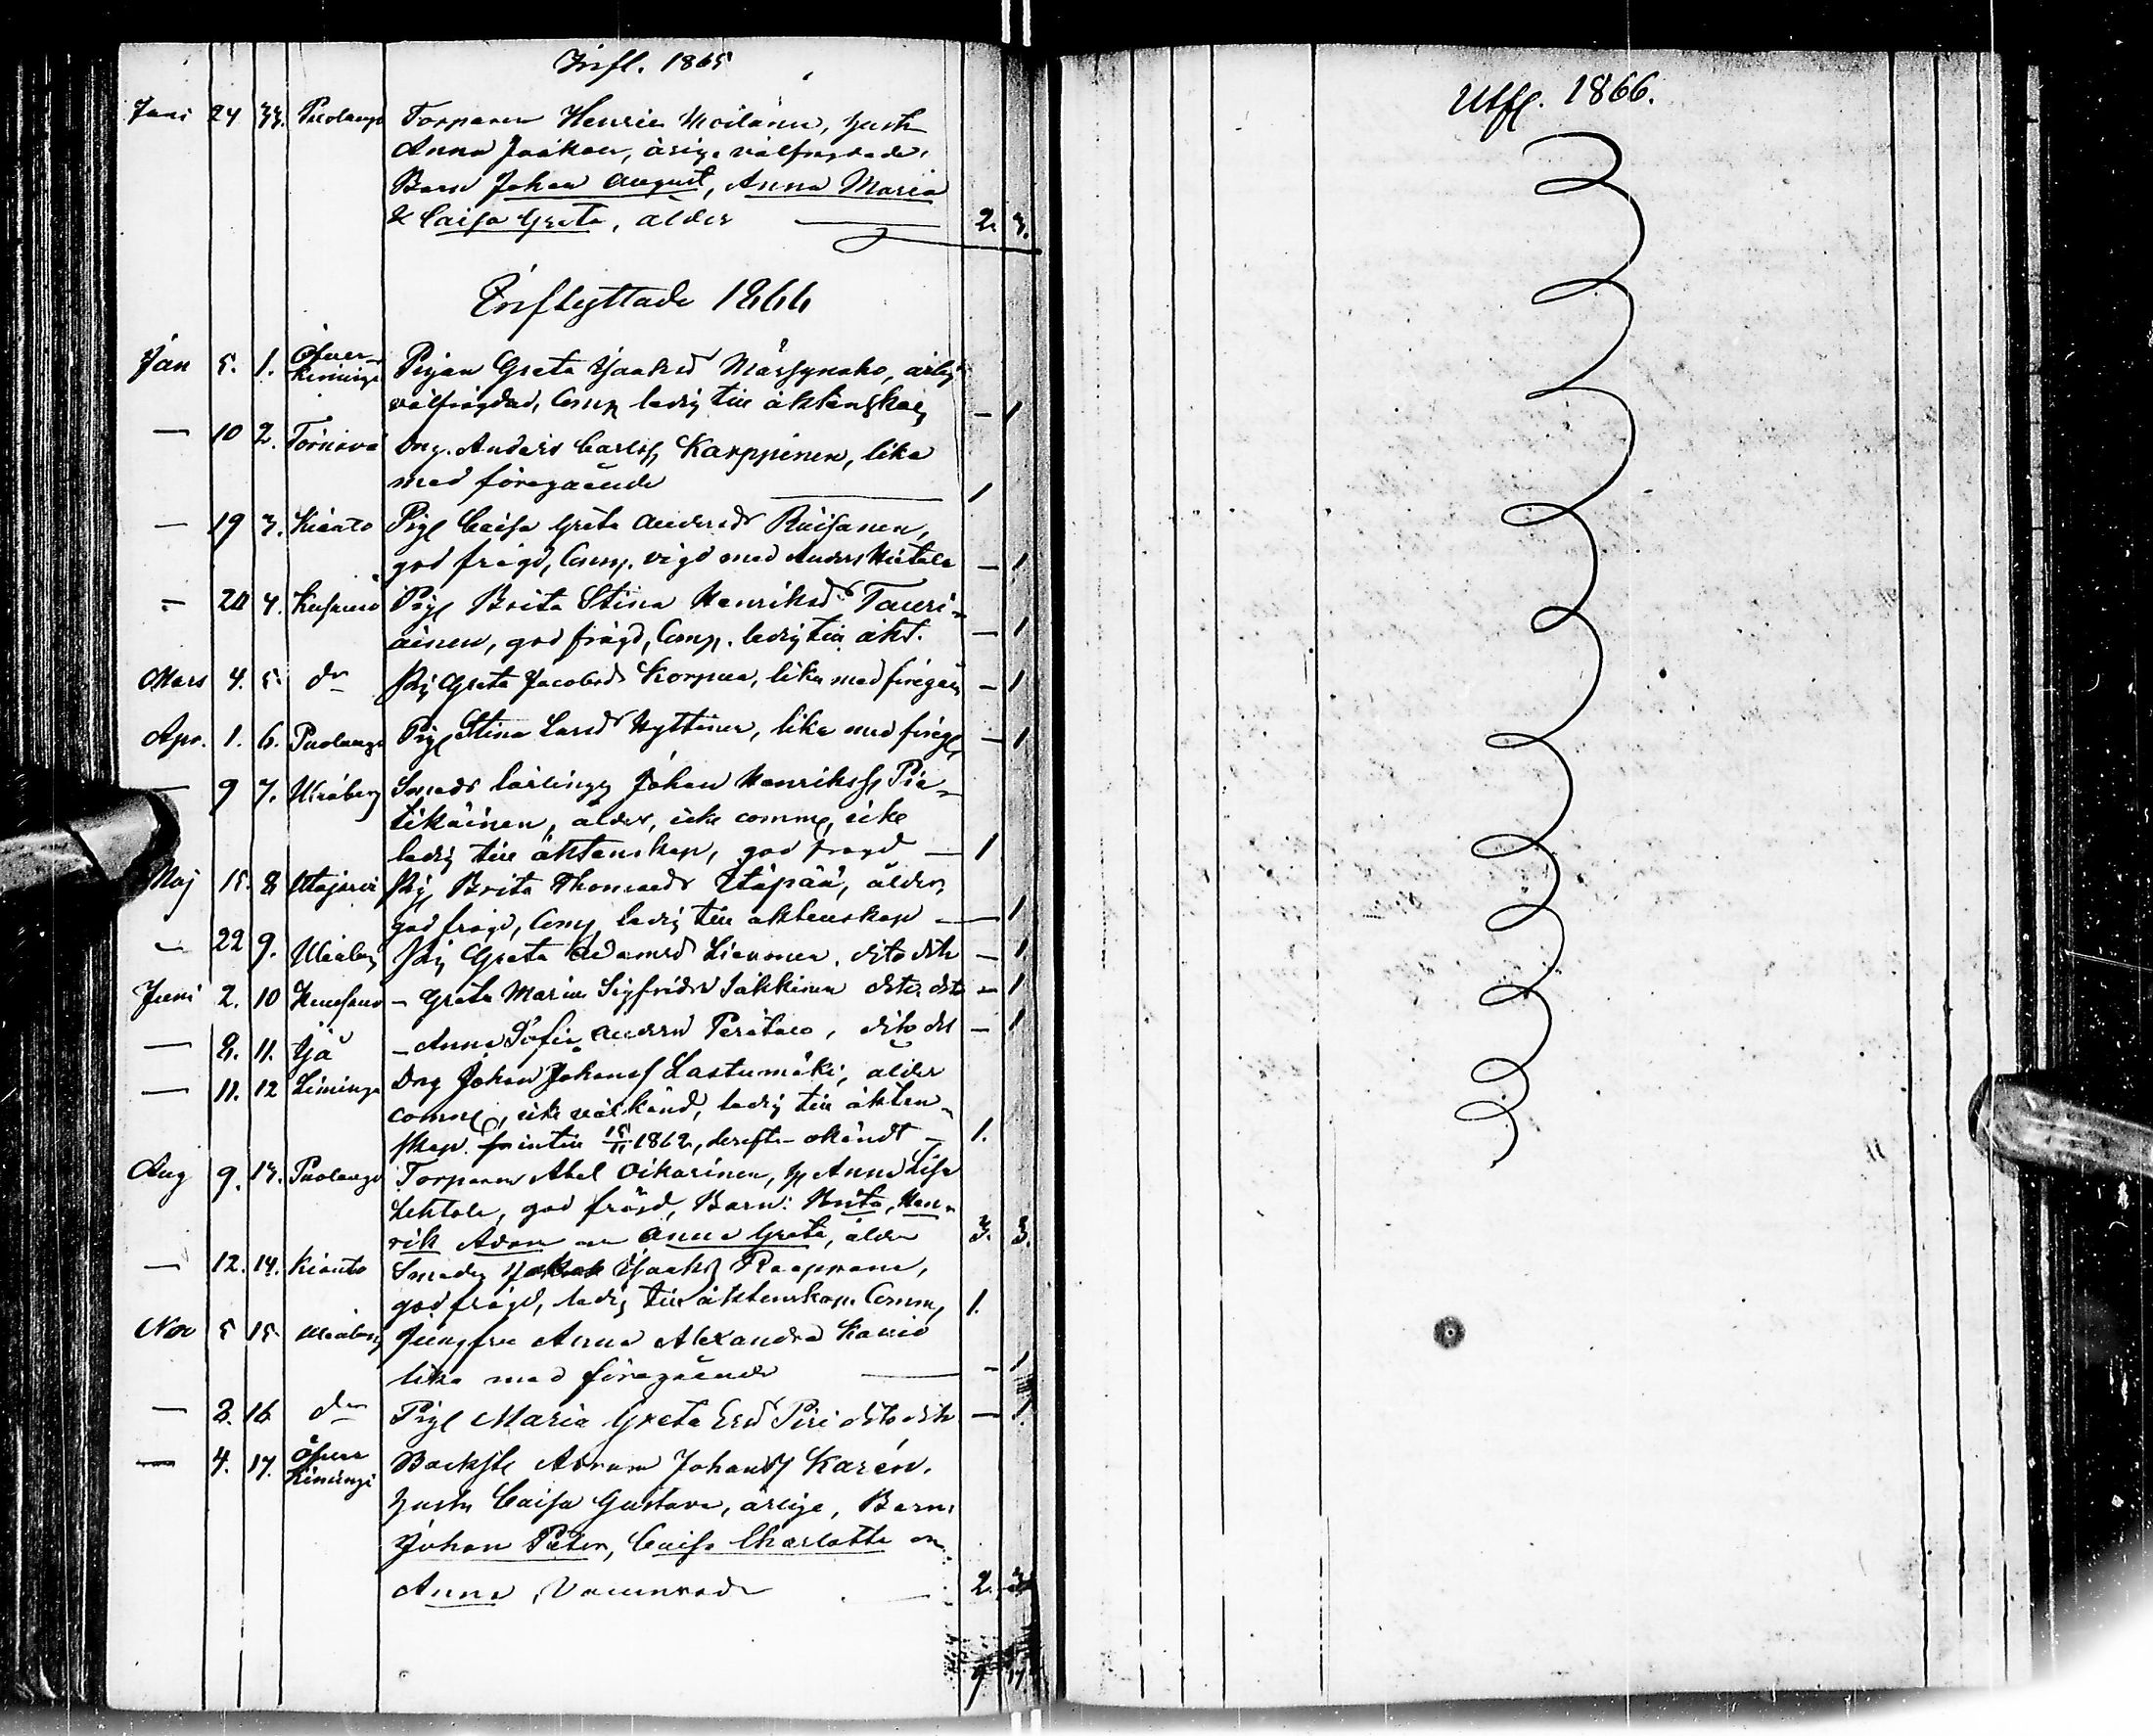 Infl. 1865
Juni 24 33. Puolango Torparen Henric Moilanen, hustr
Anna Jaakoll, ärlige välfrejdade.
Barn Johan August, Anna Maria
& Caisa Greta, ålder 2. 3.
Inflyttade 1866
Jan 5. 1. Öfver-
Kiminge Pigan Greta Isaksdr Märsynaho, ärlig
välfrägdad, Comp ledig till äktenskap – 1
— 10 2. Törnävä Dng. Anders Carlss Karppinen, lika
med föregående 1
— 19 3. Kianto Pig Caisa Greta Andersdr Räisänen,
god frägd, Comp. vigd med Anders – 1
– 20 4. Kusamo Pig Brita Stina Henriksdr Tauri-
ainen, god frägd, Comp. ledig till äkt. – 1
Mars 4. 5 do Pig Greta Jacobsdr Korpua, lika med föregå – 1
Apr. 1. 6. Puolango Pig Stina Larsdr Hyttinen, lika med föreg – 1
— 9 7. Uleåborg Smeds lärling Johan Henrikss Pie-
tikäinen, ålder, icke comm, icke
ledig till äktenskap, god fragd — 1
Maj 15. 8 Utajärvi Pig Brita Thomasdr Ylipää, ålder,
god frägd, Comp, ledig till äktenskap — 1
– 22 9. Uleåborg Pig Greta Adamsd Lievonen. dito dito – 1
Juni 2. 10 Kuusamo – Greta Maria Sigfridsd Säkkinen dito dito – 1
— 8. 11. Ijå – Anna Sofia Andersd , dito dit – 1
— 11. 12 Liminga Dng Johan Johanss Lastumäki, ålder
comm, icke välkänd, ledig till äkten-
skap. intill 15/11 1862, derefter okändt – 1.
Aug 9. 13. Puolango Torparen Abel Oikarinen, h Anna Lisa
Lehtola, god fräjd, Barn: Brita, Hen-
rik Adam o Anna Greta, ålder 3. 3.
— 12. 14. Kianto Smeden Isaks Raappana,
god frägd, ledig till äktenskap. Comm, 1.
Nov 5 15 Uleåborg Jungfru Anna Alexandra
lika med föregående – 1
— 3. 16 do Pig Maria Greta Ersd Piri dito dito — 1
— 4. 17. Öfver
Kiminge Backst Abram Johanss Karén.
hustr Caisa Gustava, ärlige, Barn:
Johan Peter, Caisa Charlotta o
Anna, Vaccinerade 2. 3
9 17
Utfl. 1866.